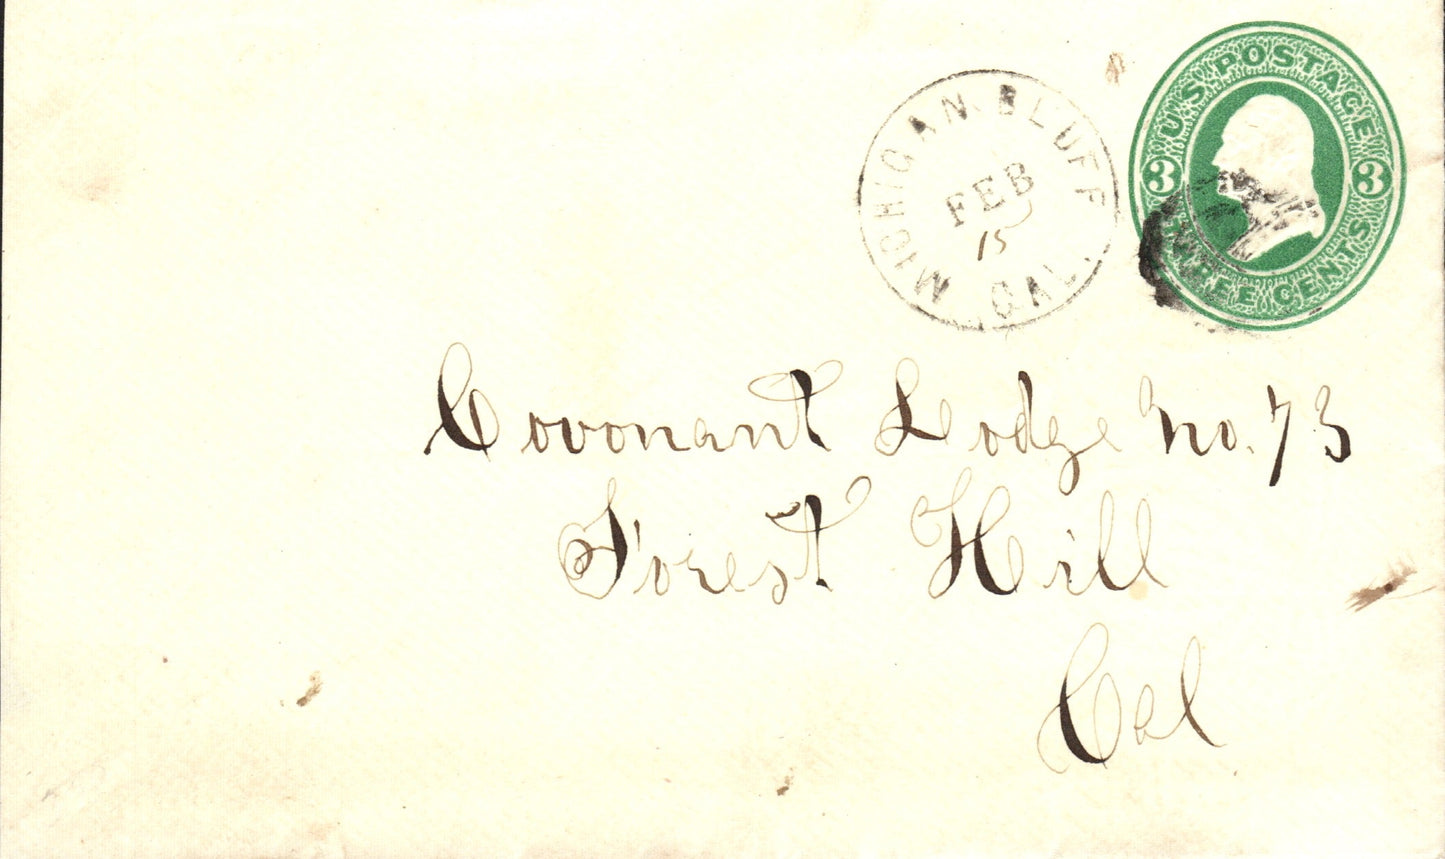 U.S. POSTAGE
3 3
THREE CENTS
MICHIGAN BLUFF
FEB
15
CAL.
Covonant Lodge No. 73
Forest Hill
Cal